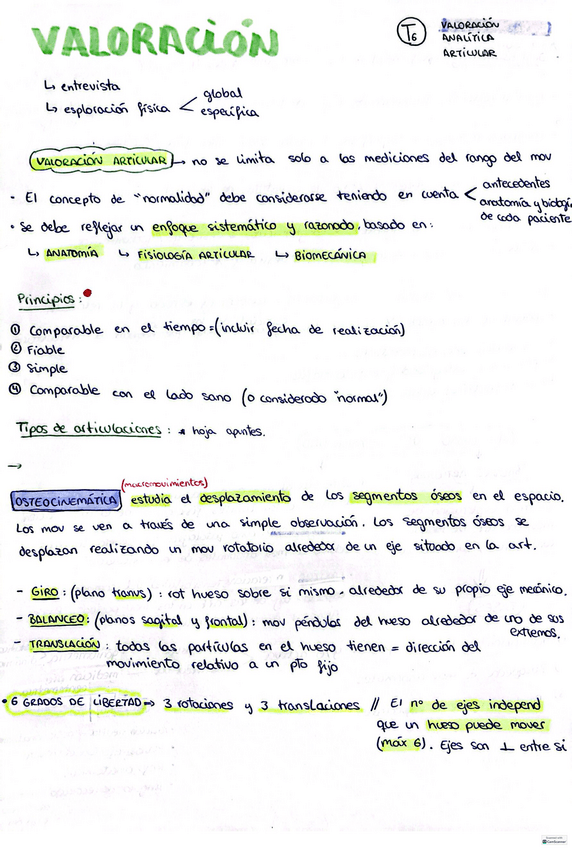 VALORACIÓN
T6
VALORACIÓN
ANALÍTICA
ARTICULAR
↳ entrevista
↳ esploración física < global
específica
VALORACIÓN ARTICULAR → no se limita solo a las mediciones del rango del mov
· El concepto de "normalidad" debe considerarse teniendo en cuenta < antecedentes
anatomía y biología
de cada paciente
· Se debe reflejar un enfoque sistemático y razonado, basado en:
↳ ANATOMÍA ↳ FISIOLOGÍA ARTICULAR ↳ BIOMECÁNICA
Principios:
① Comparable en el tiempo = (incluir fecha de realización)
② Fiable
③ Simple
④ Comparable con el lado sano (o considerado "normal")
Tipos de articulaciones : * hoja apuntes.
→
(macromovimientos)
OSTEOCINEMÁTICA estudia el desplazamiento de los segmentos óseos en el espacio.
Los mov se ven a través de una simple observación. Los segmentos óseos se
desplazan realizando un mov rotatorio alrededor de un eje situado en la art.
- GIRO : (plano tranvs) : rot hueso sobre si mismo - alrededor de su propio eje mecánico.
- BALANCEO: (planos sagital y frontal) : mov péndulos del hueso alrededor de uno de sus
extremos.
- TRANSLACIÓN : todas las partículas en el hueso tienen = dirección del
movimiento relativo a un pto fijo
· 6 GRADOS DE LIBERTAD → 3 rotaciones y 3 translaciones // El nº de ejes independ
que un hueso puede mover
(máx 6). Ejes son ⊥ entre si
CamScanner